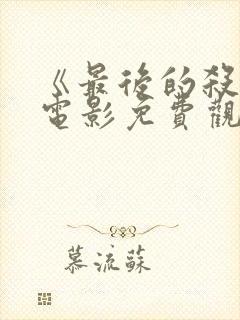 《最後的殺
電影免費觀
慕流蘇